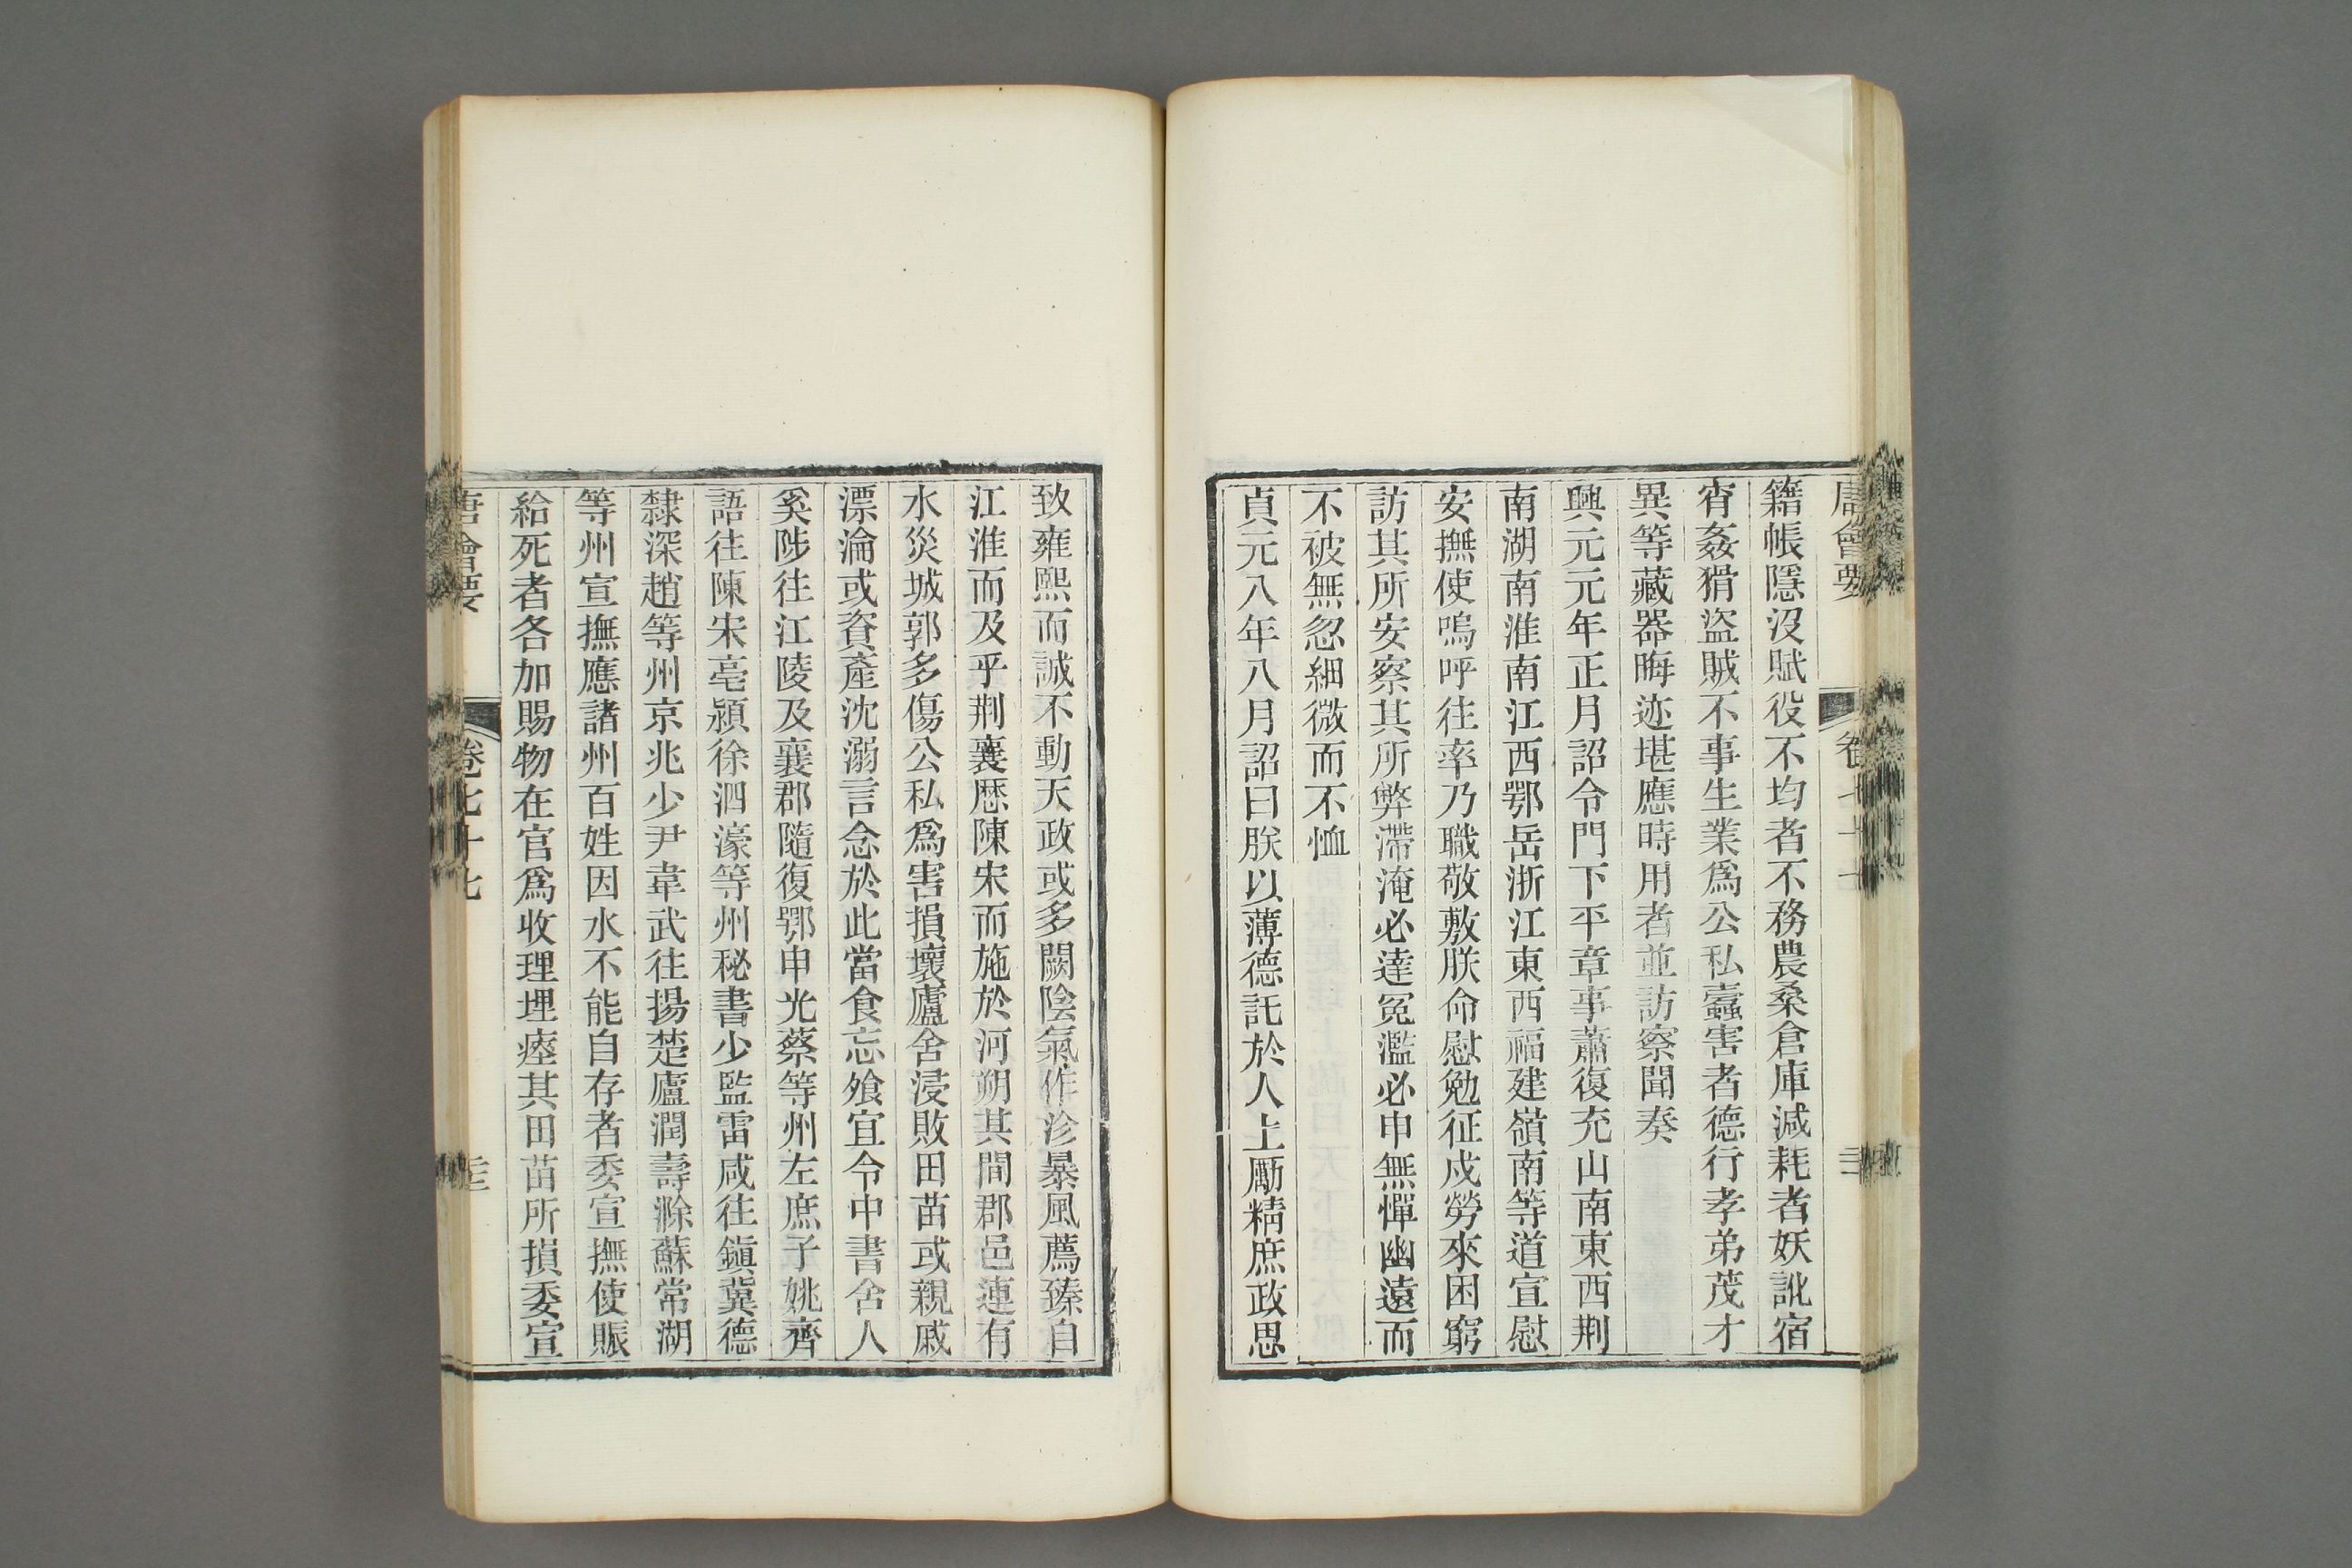 唐會要 卷七十七
籍帳隱沒賦役不均者不務農桑倉庫減耗者妖訛宿
宵姦猾盜賊不事生業爲公私蠧害者德行孝弟茂才
異等藏器晦迹堪應時用者並訪察聞奏
興元元年正月詔令門下平章事蕭復充山南東西荆
南湖南淮南江西鄂岳浙江東西福建嶺南等道宣慰
安撫使嗚呼往率乃職敬敷朕命慰勉征戍勞來困窮
訪其所安察其所弊滯淹必達冤濫必申無憚幽遠而
不被無忽細微而不恤
貞元八年八月詔曰朕以薄德託於人上勵精庶政思
致雍熙而誠不動天政或多闕陰氣作沴暴風薦臻自
江淮而及乎荆襄歷陳宋而施於河朔其間郡邑連有
水災城郭多傷公私爲害損壞廬舍浸敗田苗或親戚
漂淪或資產沈溺言念於此當食忘飧宜令中書舍人
奚陟往江陵及襄郡隨復鄂申光蔡等州左庶子姚齊
語往陳宋亳潁徐泗濠等州秘書少監雷咸往鎭冀德
隸深趙等州京兆少尹韋武往揚楚廬潤壽滁蘇常湖
等州宣撫應諸州百姓因水不能自存者委宣撫使賑
給死者各加賜物在官爲收理埋瘞其田苗所損委宣
唐會要 卷七十七